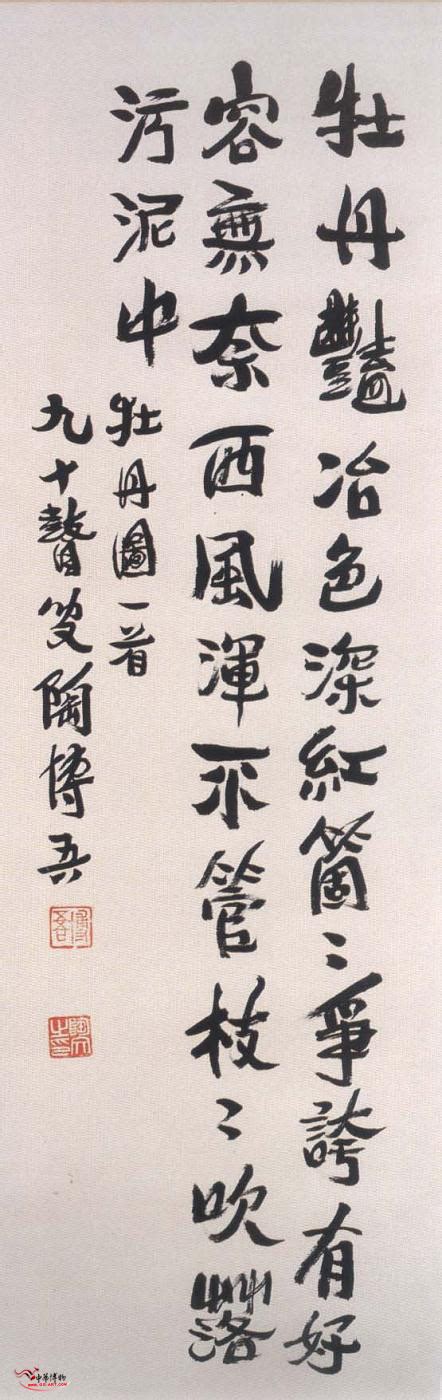 牡丹豔冶色深紅箇〻爭誇有好
容無奈西風渾不管枝〻吹落
污泥中
牡丹圖一首
九十瞽叟陶博吾
博吾